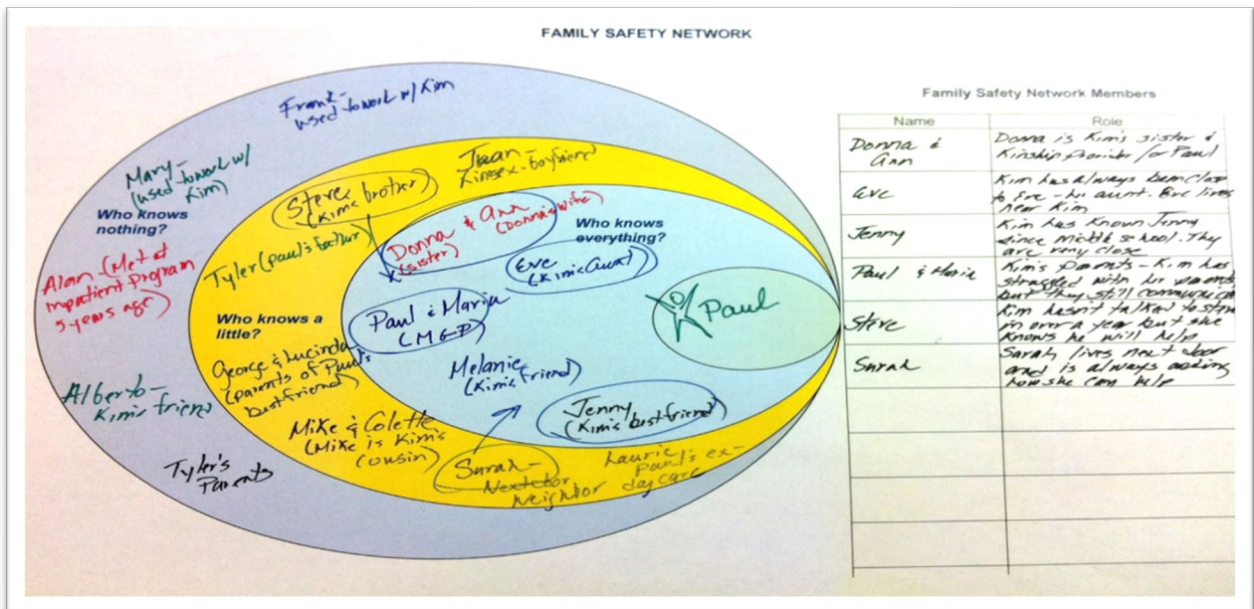 FAMILY SAFETY NETWORK
Frank-
used to work w/ Kim
Mary-
(used to work w/
Kim)
Who knows
nothing?
Alan-(Met at
inpatient program
5 years ago)
Alberto-
Kim's friend
Tyler's
Parents
Juan-
Kim's ex-boyfriend
Steve
(Kim's brother)
Tyler (Paul's father)
Who knows a
little?
George & Lucinda
(parents of Paul's
best friend)
Mike & Colette
(Mike is Kim's
cousin)
Sarah-
Next door
Neighbor
Laurie
Paul's ex-
daycare
Donna & Ann
(sister) (Donna's wife)
Who knows
everything?
Eve
(Kim's Aunt)
Paul & Maria
(MGP)
Melanie
(Kim's friend)
Jenny
(Kim's best friend)
Paul
Family Safety Network Members
Name Role
Donna &
Ann
Donna is Kim's sister &
Kinship provider for Paul
Eve
Kim has always been close
to Eve her aunt. Eve lives
near Kim
Jenny
Kim has known Jenny
since middle school. They
are very close
Paul & Maria
Kim's parents - Kim has
struggled with her parents
but they still communicate
Steve
Kim hasn't talked to Steve
in over a year but she
knows he will help
Sarah
Sarah lives next door
and is always asking
how she can help